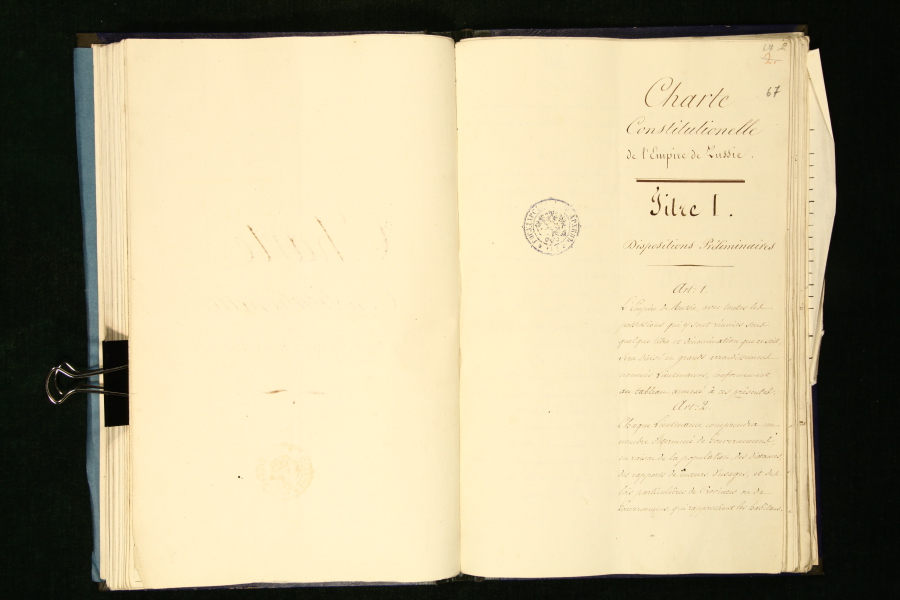 67
Charte
Constitutionelle
de l'Empire de Russie.
Titre I.
Dispositions Préliminaires
Art: 1.
L'Empire de Russie, avec toutes les
possessions qui y sont réunies sous
quelque titre et dénomination que ce soit,
sera divisé en grands arrondissemens
nommés Lieutenances, conformément
au tableau annexé à ces présentes.
Art: 2
Chaque Lieutenance comprendra un
nombre déterminé de Gouvernemens,
en raison de la population, des distances
des rapports de moeurs, d'usages, et des
lois particulières de
qui rapprochent les habitans.